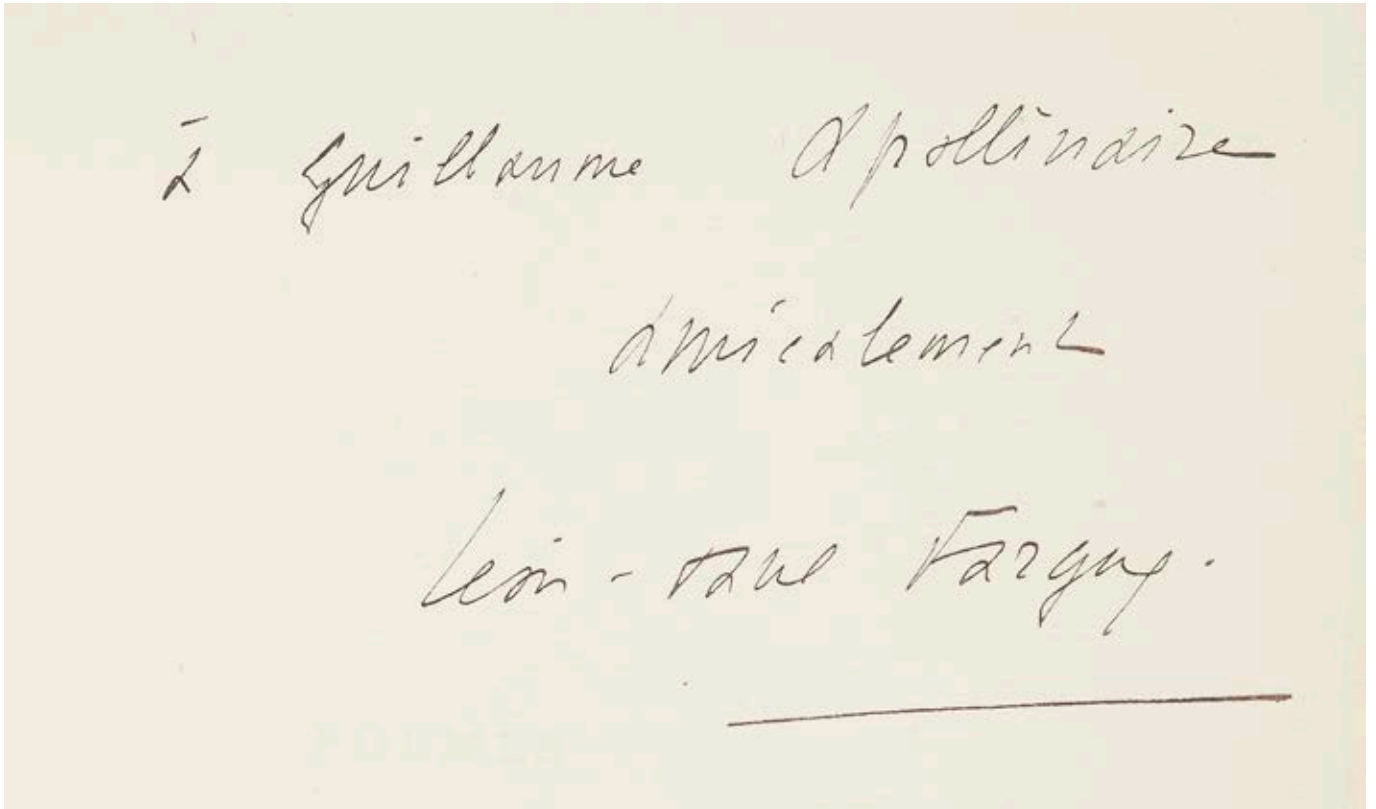 à Guillaume Apollinaire
amicalement
Léon-Paul Fargue.
POËMES